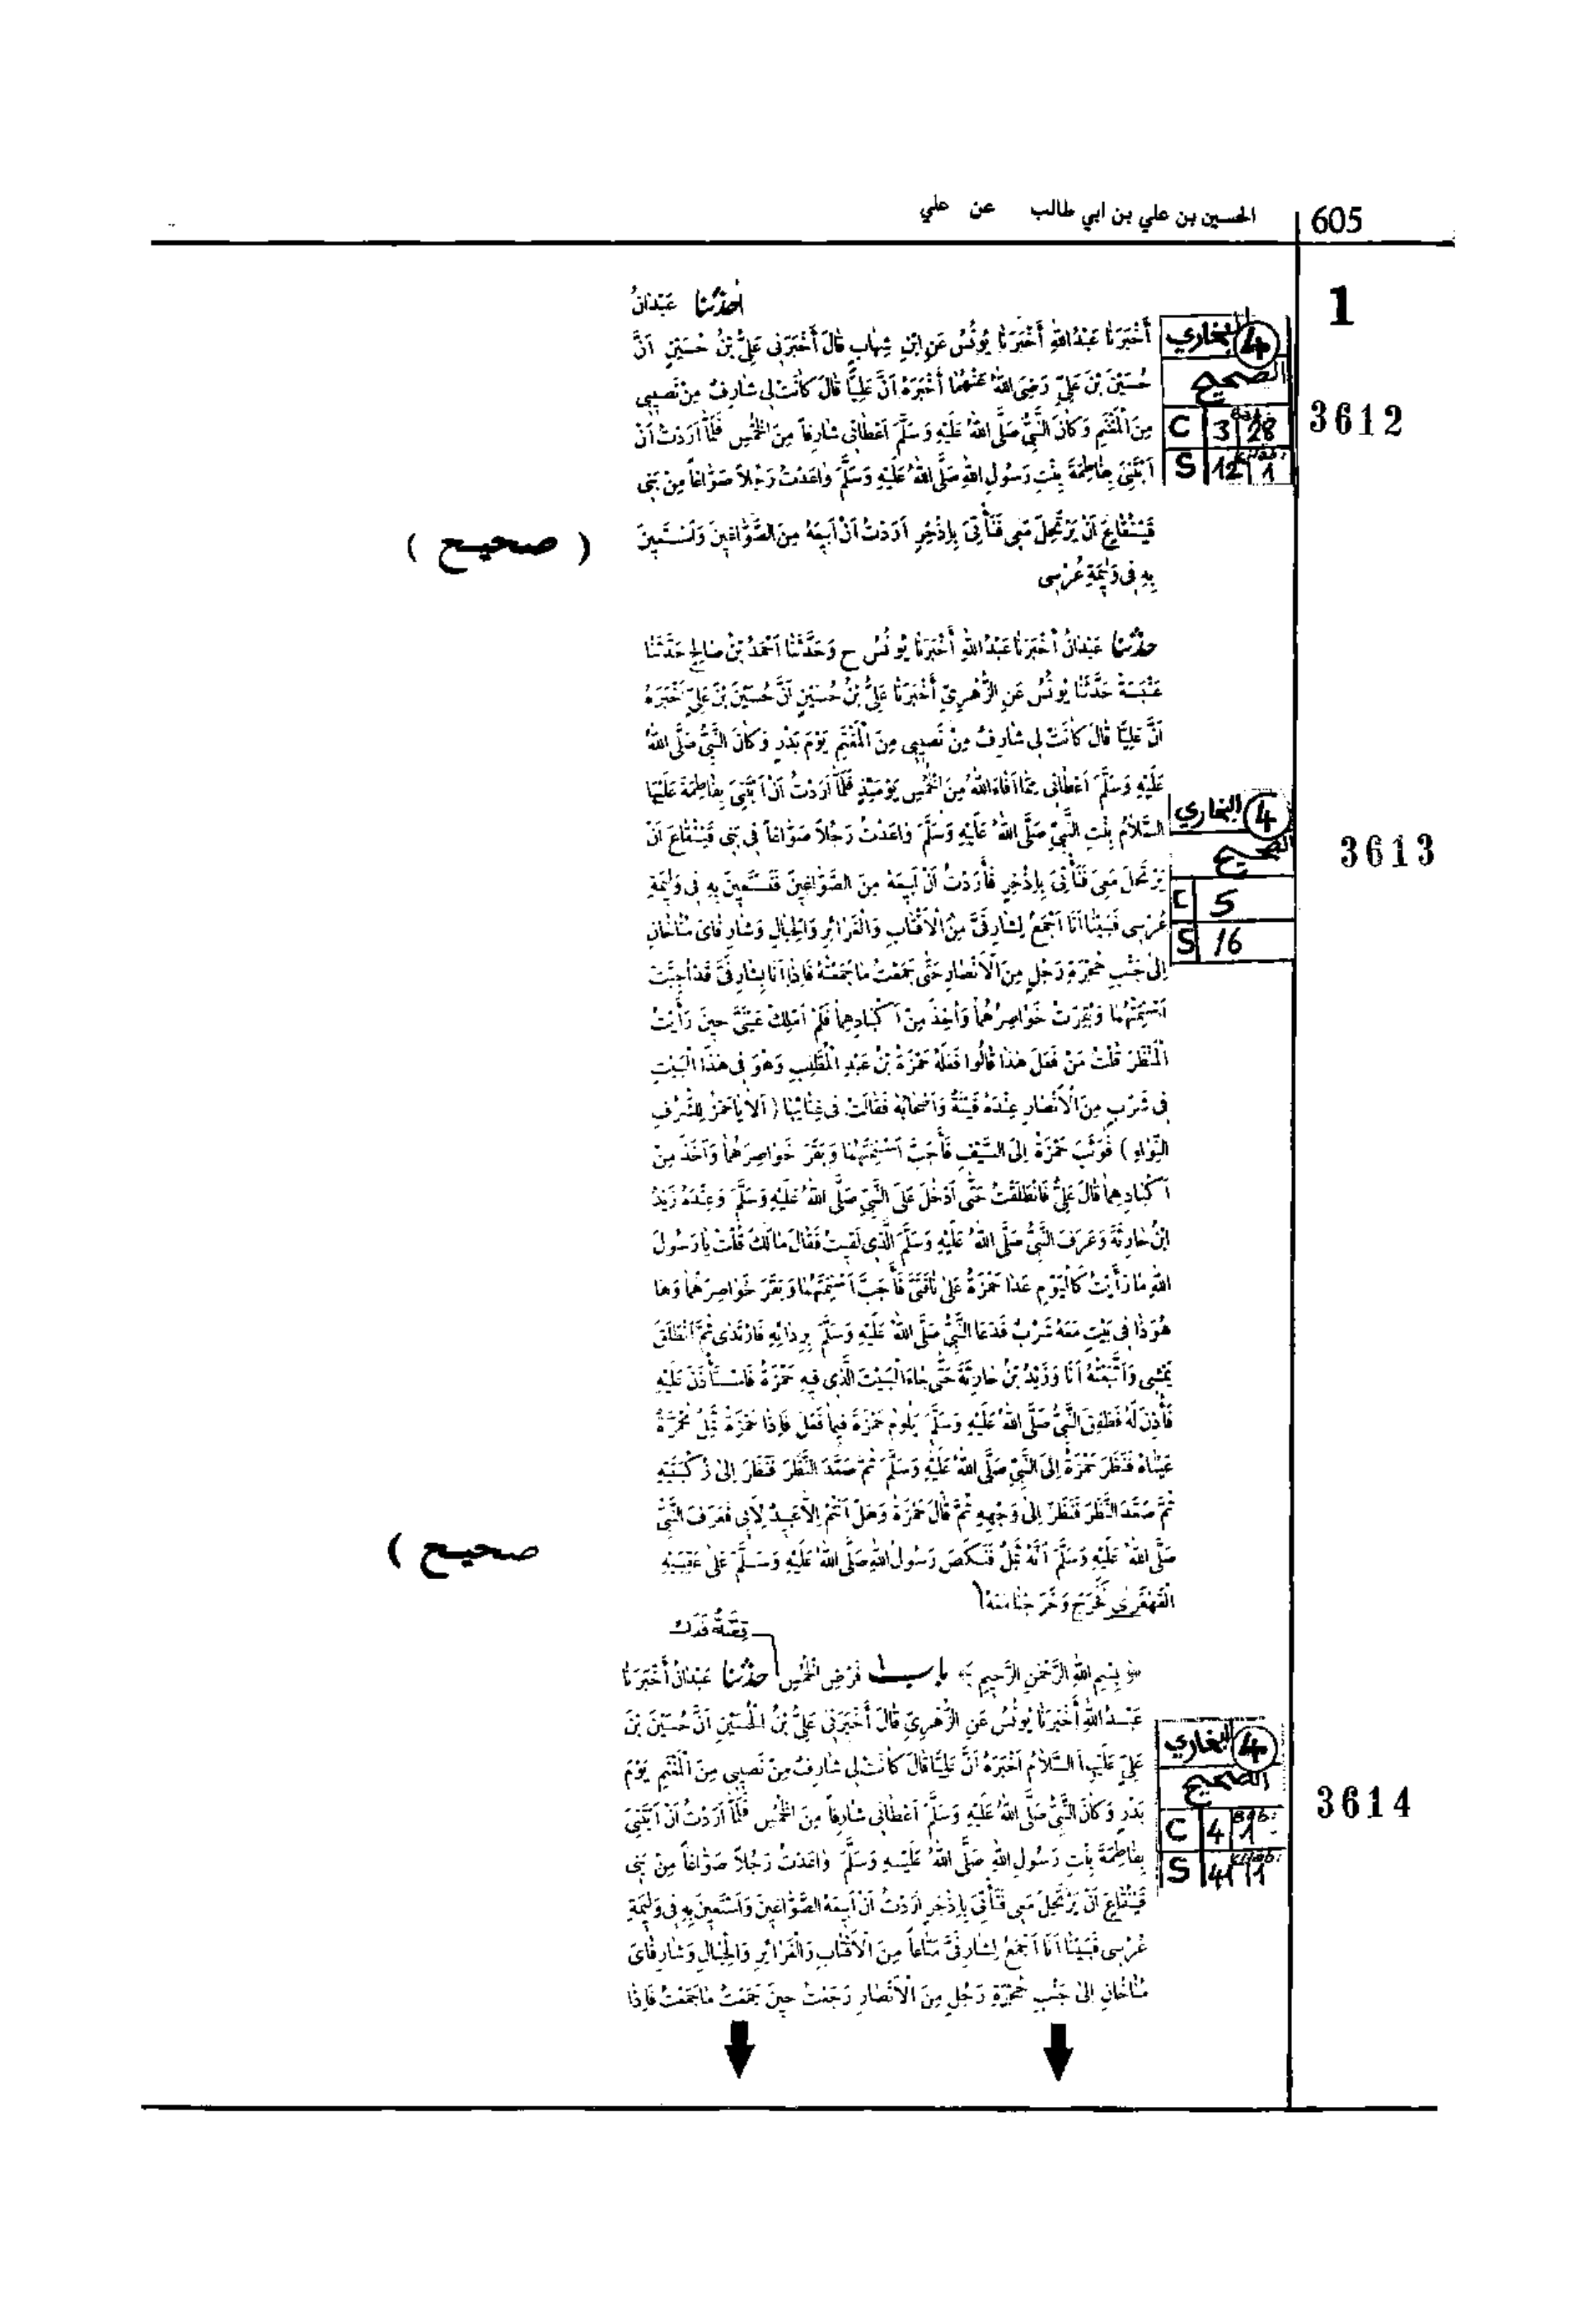 605 الحسين بن علي بن ابي طالب عن علي
1
حَدَّثَنَا عَبْدَانُ
أَخْبَرَنَا عَبْدُ اللَّهِ أَخْبَرَنَا يُونُسُ عَنِ ابْنِ شِهَابٍ قَالَ أَخْبَرَنِي عَلِيُّ بْنُ حُسَيْنٍ أَنَّ
حُسَيْنَ بْنَ عَلِيٍّ رَضِيَ اللَّهُ عَنْهُمَا أَخْبَرَهُ أَنَّ عَلِيًّا قَالَ كَانَتْ لِي شَارِفٌ مِنْ نَصِيبِي
مِنَ الْمَغْنَمِ وَكَانَ النَّبِيُّ صَلَّى اللَّهُ عَلَيْهِ وَسَلَّمَ أَعْطَانِي شَارِفًا مِنَ الْخُمُسِ فَلَمَّا أَرَدْتُ أَنْ
أَبْتَنِيَ بِفَاطِمَةَ بِنْتِ رَسُولِ اللَّهِ صَلَّى اللَّهُ عَلَيْهِ وَسَلَّمَ وَاعَدْتُ رَجُلًا صَوَّاغًا مِنْ بَنِي
قَيْنُقَاعَ أَنْ يَرْتَحِلَ مَعِي فَنَأْتِيَ بِإِذْخِرٍ أَرَدْتُ أَنْ أَبِيعَهُ مِنَ الصَّوَّاغِينَ وَأَسْتَعِينَ
بِهِ فِي وَلِيمَةِ عُرْسِي
( صحيح )
4 البخاري
الصحيح
C 3 Bab: 28
S 12 Kitab: 1
3612
حَدَّثَنَا عَبْدَانُ أَخْبَرَنَا عَبْدُ اللَّهِ أَخْبَرَنَا يُونُسُ ح وَحَدَّثَنَا أَحْمَدُ بْنُ صَالِحٍ حَدَّثَنَا
عَنْبَسَةُ حَدَّثَنَا يُونُسُ عَنِ الزُّهْرِيِّ أَخْبَرَنَا عَلِيُّ بْنُ حُسَيْنٍ أَنَّ حُسَيْنَ بْنَ عَلِيٍّ أَخْبَرَهُ
أَنَّ عَلِيًّا قَالَ كَانَتْ لِي شَارِفٌ مِنْ نَصِيبِي مِنَ الْمَغْنَمِ يَوْمَ بَدْرٍ وَكَانَ النَّبِيُّ صَلَّى اللَّهُ
عَلَيْهِ وَسَلَّمَ أَعْطَانِي مِمَّا أَفَاءَ اللَّهُ مِنَ الْخُمُسِ يَوْمَئِذٍ فَلَمَّا أَرَدْتُ أَنْ أَبْتَنِيَ بِفَاطِمَةَ عَلَيْهَا
السَّلَامُ بِنْتِ النَّبِيِّ صَلَّى اللَّهُ عَلَيْهِ وَسَلَّمَ وَاعَدْتُ رَجُلًا صَوَّاغًا فِي بَنِي قَيْنُقَاعَ أَنْ
يَرْتَحِلَ مَعِيَ فَنَأْتِيَ بِإِذْخِرٍ فَأَرَدْتُ أَنْ أَبِيعَهُ مِنَ الصَّوَّاغِينَ فَنَسْتَعِينَ بِهِ فِي وَلِيمَةِ
عُرْسِي فَبَيْنَا أَنَا أَجْمَعُ لِشَارِفَيَّ مِنَ الْأَقْتَابِ وَالْغَرَائِرِ وَالْحِبَالِ وَشَارِفَايَ مُنَاخَانِ
إِلَى جَنْبِ حُجْرَةِ رَجُلٍ مِنَ الْأَنْصَارِ حَتَّى جَمَعْتُ مَا جَمَعْتُهُ فَإِذَا أَنَا بِشَارِفَيَّ قَدْ أُجِبَّتْ
أَسْنِمَتُهُمَا وَبُقِرَتْ خَوَاصِرُهُمَا وَأُخِذَ مِنْ أَكْبَادِهِمَا فَلَمْ أَمْلِكْ عَيْنَيَّ حِينَ رَأَيْتُ
الْمَنْظَرَ قُلْتُ مَنْ فَعَلَ هَذَا قَالُوا فَعَلَهُ حَمْزَةُ بْنُ عَبْدِ الْمُطَّلِبِ وَهْوَ فِي هَذَا الْبَيْتِ
فِي شَرْبٍ مِنَ الْأَنْصَارِ عِنْدَهُ قَيْنَةٌ وَأَصْحَابُهُ فَقَالَتْ فِي غِنَائِهَا ( أَلَا يَا حَمْزُ لِلشُّرُفِ
النِّوَاءِ ) فَوَثَبَ حَمْزَةُ إِلَى السَّيْفِ فَأَجَبَّ أَسْنِمَتَهُمَا وَبَقَرَ خَوَاصِرَهُمَا وَأَخَذَ مِنْ
أَكْبَادِهِمَا قَالَ عَلِيٌّ فَانْطَلَقْتُ حَتَّى أَدْخُلَ عَلَى النَّبِيِّ صَلَّى اللَّهُ عَلَيْهِ وَسَلَّمَ وَعِنْدَهُ زَيْدُ
ابْنُ حَارِثَةَ وَعَرَفَ النَّبِيُّ صَلَّى اللَّهُ عَلَيْهِ وَسَلَّمَ الَّذِي لَقِيتُ فَقَالَ مَا لَكَ قُلْتُ يَا رَسُولَ
اللَّهِ مَا رَأَيْتُ كَالْيَوْمِ عَدَا حَمْزَةُ عَلَى نَاقَتَيَّ فَأَجَبَّ أَسْنِمَتَهُمَا وَبَقَرَ خَوَاصِرَهُمَا وَهَا
هُوَ ذَا فِي بَيْتٍ مَعَهُ شَرْبٌ فَدَعَا النَّبِيُّ صَلَّى اللَّهُ عَلَيْهِ وَسَلَّمَ بِرِدَائِهِ فَارْتَدَى ثُمَّ انْطَلَقَ
يَمْشِي وَاتَّبَعْتُهُ أَنَا وَزَيْدُ بْنُ حَارِثَةَ حَتَّى جَاءَ الْبَيْتَ الَّذِي فِيهِ حَمْزَةُ فَاسْتَأْذَنَ عَلَيْهِ
فَأُذِنَ لَهُ فَطَفِقَ النَّبِيُّ صَلَّى اللَّهُ عَلَيْهِ وَسَلَّمَ يَلُومُ حَمْزَةَ فِيمَا فَعَلَ فَإِذَا حَمْزَةُ ثَمِلٌ مُحْمَرَّةٌ
عَيْنَاهُ فَنَظَرَ حَمْزَةُ إِلَى النَّبِيِّ صَلَّى اللَّهُ عَلَيْهِ وَسَلَّمَ ثُمَّ صَعَّدَ النَّظَرَ فَنَظَرَ إِلَى رُكْبَتَيْهِ
ثُمَّ صَعَّدَ النَّظَرَ فَنَظَرَ إِلَى وَجْهِهِ ثُمَّ قَالَ حَمْزَةُ وَهَلْ أَنْتُمْ إِلَّا عَبِيدٌ لِأَبِي فَعَرَفَ النَّبِيُّ
صَلَّى اللَّهُ عَلَيْهِ وَسَلَّمَ أَنَّهُ ثَمِلٌ فَنَكَصَ رَسُولُ اللَّهِ صَلَّى اللَّهُ عَلَيْهِ وَسَلَّمَ عَلَى عَقِبَيْهِ
الْقَهْقَرَى فَخَرَجَ وَخَرَجْنَا مَعَهُ
صحيح )
4 البخاري
الصحيح
C 5
S 16
3613
قِصَّةُ فَدَك
﴿ بِسْمِ اللَّهِ الرَّحْمَنِ الرَّحِيمِ ﴾ باب فَرْضِ الْخُمُسِ حَدَّثَنَا عَبْدَانُ أَخْبَرَنَا
عَبْدُ اللَّهِ أَخْبَرَنَا يُونُسُ عَنِ الزُّهْرِيِّ قَالَ أَخْبَرَنِي عَلِيُّ بْنُ الْحُسَيْنِ أَنَّ حُسَيْنَ بْنَ
عَلِيٍّ عَلَيْهِمَا السَّلَامُ أَخْبَرَهُ أَنَّ عَلِيًّا قَالَ كَانَتْ لِي شَارِفٌ مِنْ نَصِيبِي مِنَ الْمَغْنَمِ يَوْمَ
بَدْرٍ وَكَانَ النَّبِيُّ صَلَّى اللَّهُ عَلَيْهِ وَسَلَّمَ أَعْطَانِي شَارِفًا مِنَ الْخُمُسِ فَلَمَّا أَرَدْتُ أَنْ أَبْتَنِيَ
بِفَاطِمَةَ بِنْتِ رَسُولِ اللَّهِ صَلَّى اللَّهُ عَلَيْهِ وَسَلَّمَ وَاعَدْتُ رَجُلًا صَوَّاغًا مِنْ بَنِي
قَيْنُقَاعَ أَنْ يَرْتَحِلَ مَعِي فَنَأْتِيَ بِإِذْخِرٍ أَرَدْتُ أَنْ أَبِيعَهُ الصَّوَّاغِينَ وَأَسْتَعِينَ بِهِ فِي وَلِيمَةِ
عُرْسِي فَبَيْنَا أَنَا أَجْمَعُ لِشَارِفَيَّ مَتَاعًا مِنَ الْأَقْتَابِ وَالْغَرَائِرِ وَالْحِبَالِ وَشَارِفَايَ
مُنَاخَانِ إِلَى جَنْبِ حُجْرَةِ رَجُلٍ مِنَ الْأَنْصَارِ رَجَعْتُ حِينَ جَمَعْتُ مَا جَمَعْتُ فَإِذَا
4 البخاري
الصحيح
C 4 Bab: 1
S 41 Kitab: 1
3614